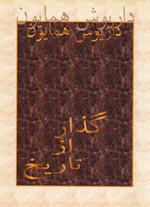 داریوش همایون
داریوش همایون
گذار
از
تاریخ